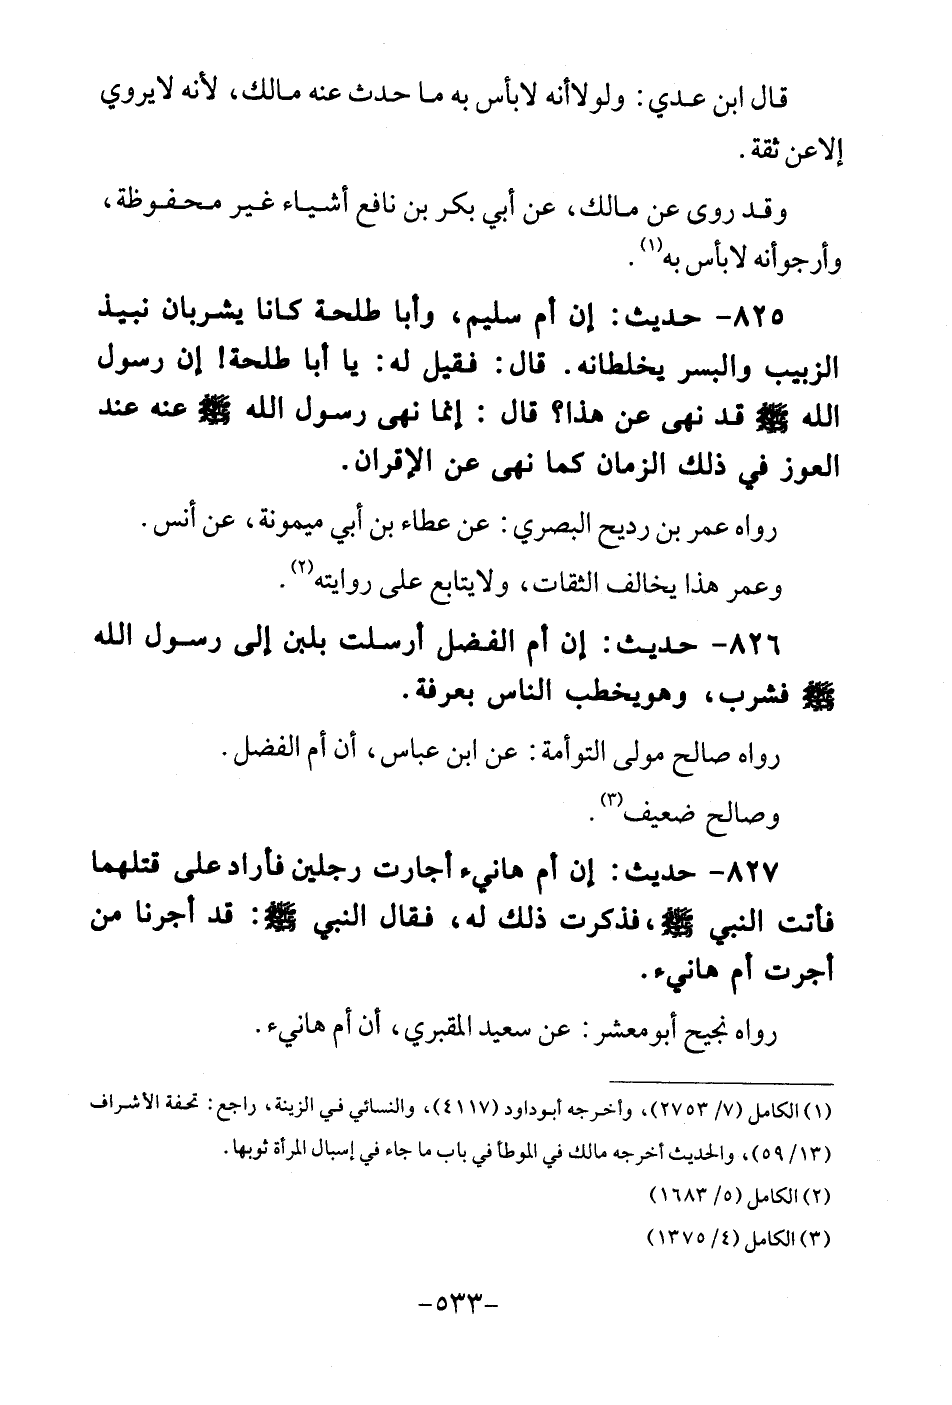 قال ابن عدي: ولولا أنه لابأس به ما حدث عنه مالك، لأنه لايروي
إلاعن ثقة.
وقد روى عن مالك، عن أبي بكر بن نافع أشياء غير محفوظة،
وأرجوأنه لابأس به(١).
٨٢٥- حديث: إن أم سليم، وأبا طلحة كانا يشربان نبيذ
الزبيب والبسر يخلطانه. قال: فقيل له: يا أبا طلحة! إن رسول
الله ﷺ قد نهى عن هذا؟ قال : إنما نهى رسول الله ﷺ عنه عند
العوز في ذلك الزمان كما نهى عن الإقران.
رواه عمر بن رديح البصري: عن عطاء بن أبي ميمونة، عن أنس.
وعمر هذا يخالف الثقات، ولايتابع على روايته(٢).
٨٢٦- حديث: إن أم الفضل أرسلت بلبن إلى رسول الله
ﷺ فشرب، وهويخطب الناس بعرفة.
رواه صالح مولى التوأمة: عن ابن عباس، أن أم الفضل.
وصالح ضعيف(٣).
٨٢٧- حديث: إن أم هانيء أجارت رجلين فأراد على قتلهما
فأتت النبي ﷺ،فذكرت ذلك له، فقال النبي ﷺ: قد أجرنا من
أجرت أم هانيء.
رواه نجيح أبومعشر: عن سعيد المقبري، أن أم هانيء.
(١) الكامل (٧/ ٢٧٥٣)، وأخرجه أبوداود (٤١١٧)، والنسائي في الزينة، راجع: تحفة الأشراف
(١٣/ ٥٩)، والحديث أخرجه مالك في الموطأ في باب ما جاء في إسبال المرأة ثوبها.
(٢) الكامل (٥/ ١٦٨٣)
(٣) الكامل (٤/ ١٣٧٥)
-٥٣٣-